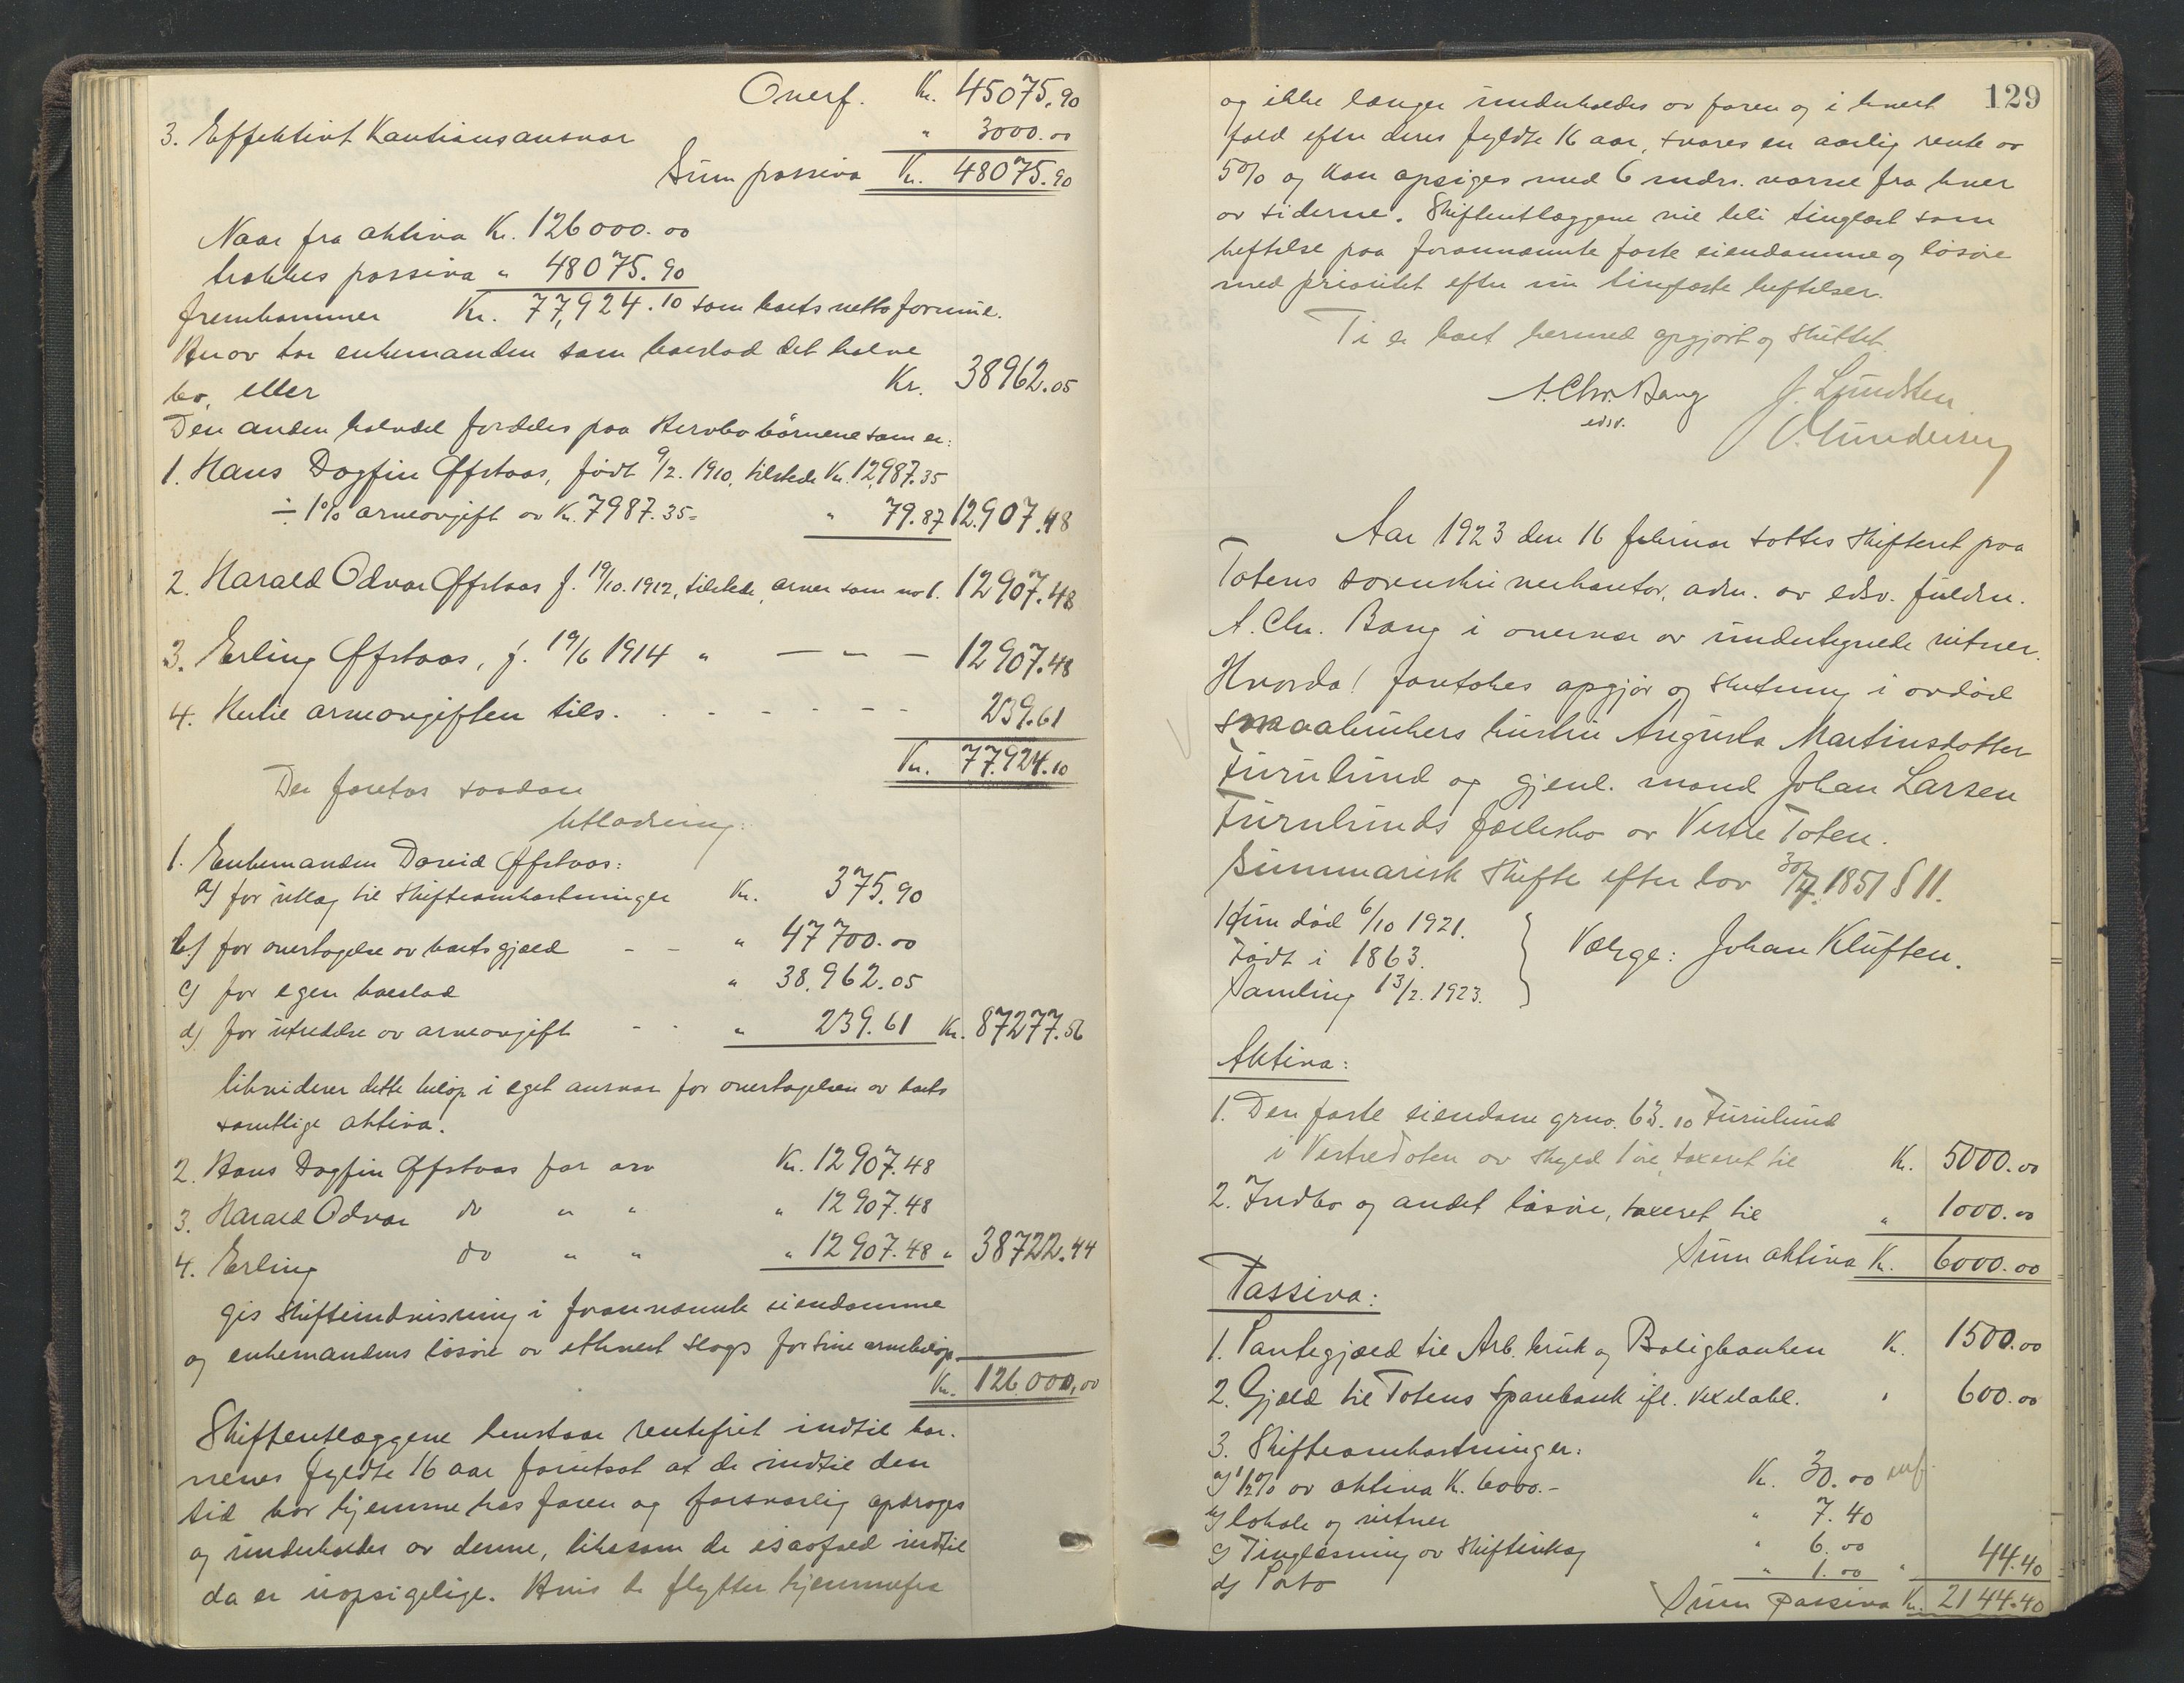 Overf. Kr. 45075.90
3. Effektivt Kautionsansvar " 3000.00
Sum passiva Kr. 48075.90
Naar fra aktiva Kr. 126000.00
trækkes passiva " 48075.90
fremkommer Kr. 77,924.10 som boets nettoformue.
Herav tar enkemanden som boeslod det halve
bo, eller Kr. 38962.05
Den anden halvdel fordeles paa Stervbobörnene som er:
1. Hans Dagfin Offstaas, født 9/2. 1910, tilstede Kr. 12,987.35
÷ 1% arveavgift av Kr. 7987.35 = " 79.87 12.907.48
2. Harald Odvar Offstaas f. 19/10. 1912, tilstede, arver som no 1. 12907.48
3. Erling Offstaas, f. 19/6 1914 " — " — 12907.48
4. Hertil arveavgiften tils. . . - - - - - - 239.61
Kr. 77.924.10
Der foretas saadan
Utlodning:
1. Enkemanden David Offstaas:
a) for utlæg til skifteomkostninger Kr. 375.90
b.) for overtagelse av boets gjæld - - " 47700.00
c) for egen boeslod " 38.962.05
d) for utredelse av arveavgift - - " 239.61 Kr. 87277.56
likviderer dette beløp i eget ansvar for overtagelsen av boets
samtlige aktiva.
2. Hans Dagfin Offstaas for arv Kr. 12907.48
3. Harald Odvar do " " " 12907.48
4. Erling do " " " 12907.48 " 38722.44
gis skifteindvisning i forannævnte eiendomme
og enkemandens løsøre av ethvert slags for sine arvebeløp
Kr. 126.000,00
Skifteutlæggene henstaar rentefrit indtil bør-
nenes fyldte 16 aar forutsat at de indtil den
tid bor hjemme hos faren og forsvarlig opdrages
og underholdes av denne, likesom de isaafald indtil
da er uopsigelige. Hvis de flytter hjemmefra
129
og ikke længer underholdes av faren og i hvert
fald efter deres fyldte 16 aar, svares en aarlig rente av
5% og kan opsiges med 6 mdrs. varsel fra hver
av siderne. Skifteutlæggene vil bli tinglæst som
heftelse paa forannævnte faste eiendomme og løsøre
med prioritet efter nu tingfæste heftelser.
Ti er boet hermed opgjort og sluttet.
A. Chr. Bang J. Lundsten
edsv. O. Gundersen
Aar 1923 den 16 februar sattes skifteret paa
Totens sorenskriverkontor, adm. av edsv. fuldm.
A. Chr. Bang i overvær av undertegnede vitner.
Hvorda! foretokes opgjør og slutning i avdød
smaabrukers hustru Augusta Martinsdotter
Furulund og gjenl. mand Johan Larsen
Furulunds fællesbo av Vestre Toten.
Summarisk skifte efter lov 30/7. 1851 § 11.
Hun død 6/10 1921.
Født i 1863. Værge: Johan Kluften.
Samling 13/2. 1923.
Aktiva:
1. Den faste eiendom grno. 63.10 Furulund
i Vestre Toten av skyld 1 øre, taxeret til Kr. 5000.00
2. Indbo og andet løsøre, taxeret til " 1000.00
Sum aktiva Kr. 6000.00
Passiva:
1. Pantegjæld til Arb. bruk og Boligbanken Kr. 1500.00
2. Gjæld til Totens Sparebank ifl. vexelobl. " 600.00
3. Skifteomkostninger:
a) 1/2% av aktiva K. 6000.- Kr. 30.00
b) lokale og vitner " 7.40
c) Tinglæsning av skifteutlæg " 6.00
d) Porto " 1.00 " 44.40
Sum passiva Kr. 2144.40